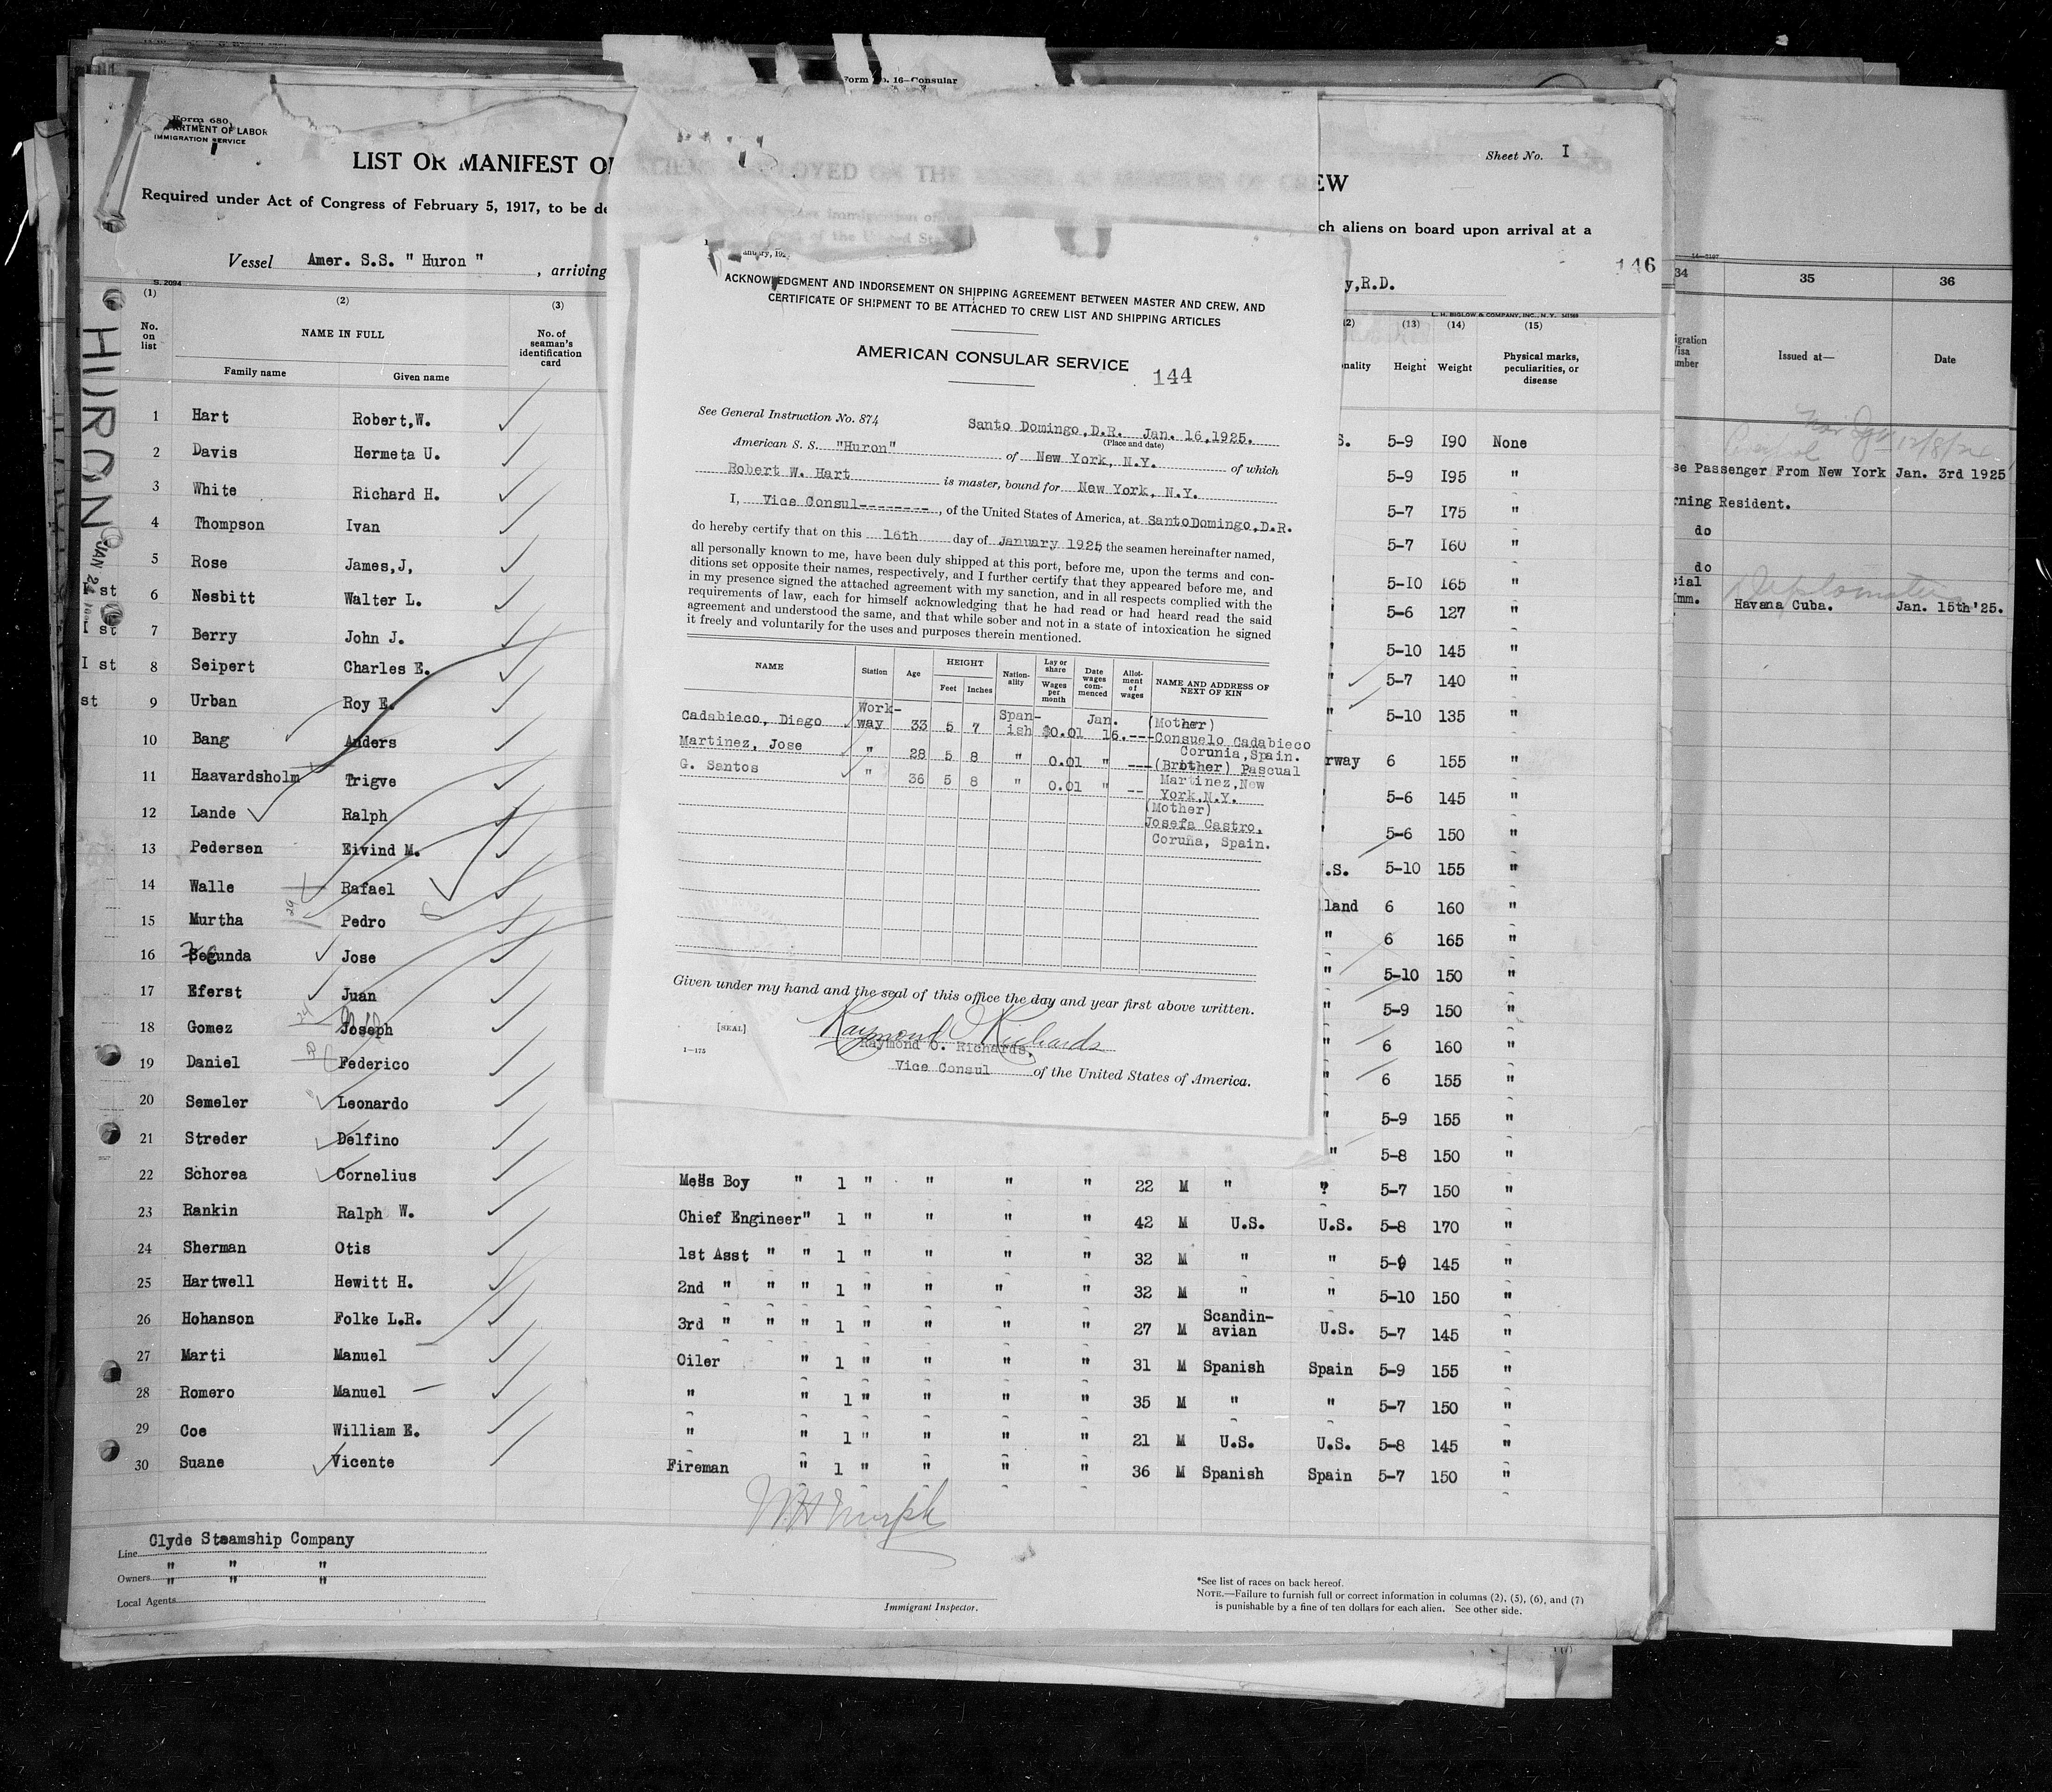 Form 680
DEPARTMENT OF LABOR
IMMIGRATION SERVICE
LIST OR MANIFEST OF
Required under Act of Congress of February 5, 1917, to be de
Vessel Amer. S.S. " Huron " , arriving
S. 2094
(1) (2) (3)
No. on list
NAME IN FULL
No. of seaman's identification card
Family name Given name
HURON
JAN 2
1 Hart Robert,W.
2 Davis Hermeta U.
3 White Richard H.
4 Thompson Ivan
5 Rose James,J,
I st 6 Nesbitt Walter L.
I st 7 Berry John J.
I st 8 Seipert Charles E.
st 9 Urban Roy E.
10 Bang Anders
11 Haavardsholm Trigve
12 Lande Ralph
13 Pedersen Eivind M.
14 Walle Rafael
15 Murtha Pedro
16 Segunda Jose
17 Eferst Juan
18 Gomez Joseph
19 Daniel Federico
20 Semeler Leonardo
21 Streder Delfino
22 Schorea Cornelius
23 Rankin Ralph W.
24 Sherman Otis
25 Hartwell Hewitt H.
26 Hohanson Folke L.R.
27 Marti Manuel
28 Romero Manuel
29 Coe William E.
30 Suane Vicente
Line Clyde Steamship Company
Owners " " "
Local Agents " " "
Form No. 16—Consular
ALIENS EMPLOYED ON THE VESSEL AS MEMBERS OF CREW
ACKNOWLEDGMENT AND INDORSEMENT ON SHIPPING AGREEMENT BETWEEN MASTER AND CREW, AND
CERTIFICATE OF SHIPMENT TO BE ATTACHED TO CREW LIST AND SHIPPING ARTICLES
AMERICAN CONSULAR SERVICE
144
See General Instruction No. 874
Santo Domingo,D.R. Jan. 16,1925.
(Place and date)
American S. S. "Huron" of New York, N.Y. of which
Robert W. Hart is master, bound for New York, N.Y.
I, Vice Consul-------- , of the United States of America, at SantoDomingo,D.R.
do hereby certify that on this 16th day of January 1925, the seamen hereinafter named,
all personally known to me, have been duly shipped at this port, before me, upon the terms and con-
ditions set opposite their names, respectively, and I further certify that they appeared before me, and
in my presence signed the attached agreement with my sanction, and in all respects complied with the
requirements of law, each for himself acknowledging that he had read or had heard read the said
agreement and understood the same, and that while sober and not in a state of intoxication he signed
it freely and voluntarily for the uses and purposes therein mentioned.
NAME Station Age HEIGHT Feet Inches Nation-ality Lay or share Wages per month Date wages com-menced Allot-ment of wages NAME AND ADDRESS OF NEXT OF KIN
Cadabieco, Diego Work-way 33 5 7 Span-ish $0.01 Jan. 16.--- (Mother)
Consuelo Cadabieco
Corunia,Spain.
Martinez, Jose " 28 5 8 " 0.01 " --- (Brother) Pascual
Martinez,New
York,N.Y.
G. Santos " 36 5 8 " 0.01 " -- (Mother)
Josefa Castro,
Coruña, Spain.
Given under my hand and the seal of this office the day and year first above written.
[SEAL]
Raymond O Richards
Raymond O. Richards,
1—175
Vice Consul of the United States of America.
Mess Boy " 1 " " " " 22 M " " 5-7 150 "
Chief Engineer" 1 " " " " 42 M U.S. U.S. 5-8 170 "
1st Asst " " 1 " " " " 32 M " " 5-9 145 "
2nd " " " 1 " " " " 32 M " " 5-10 150 "
3rd " " " 1 " " " " 27 M Scandin-avian U.S. 5-7 145 "
Oiler " 1 " " " " 31 M Spanish Spain 5-9 155 "
" " 1 " " " " 35 M " " 5-7 150 "
" " 1 " " " " 21 M U.S. U.S. 5-8 145 "
Fireman " 1 " " " " 36 M Spanish Spain 5-7 150 "
Immigrant Inspector.
*See list of races on back hereof.
NOTE.—Failure to furnish full or correct information in columns (2), (5), (6), and (7)
is punishable by a fine of ten dollars for each alien. See other side.
Sheet No. I
EW
ch aliens on board upon arrival at a
146
y,R.D.
L. H. BIGLOW & COMPANY, INC., N.Y.
(13) (14) (15)
nality Height Weight Physical marks, peculiarities, or disease
S. 5-9 I90 None
5-9 I95 "
5-7 I75 "
5-7 I60 "
5-I0 165 "
5-6 127 "
5-10 145 "
5-7 140 "
5-10 135 "
rway 6 155 "
5-6 145 "
5-6 150 "
.S. 5-10 155 "
land 6 160 "
" 6 165 "
" 5-10 150 "
" 5-9 150 "
" 6 160 "
" 6 155 "
" 5-9 155 "
" 5-8 150 "
34 35 36
igration Visa mber
Issued at—
Date
12/8/24
se Passenger From New York Jan. 3rd 1925
rning Resident.
do
do
cial
Imm. Havana Cuba. Jan. 15th'25.